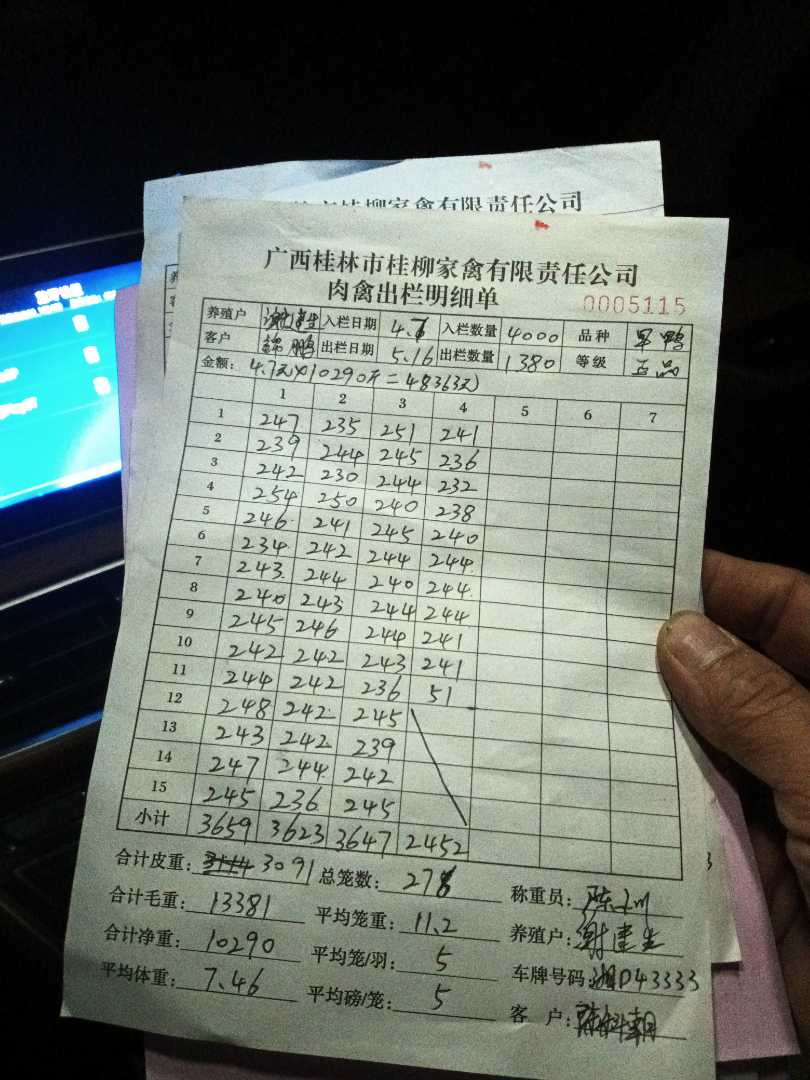 桂柳家禽有限责任公司
广西桂林市桂柳家禽有限责任公司
肉禽出栏明细单 0005115
养殖户 谢建生 入栏日期 4.7 入栏数量 4000 品种
客户 鹏 出栏日期 5.16 出栏数量 1380 等级 正品
金额: 4.7元×10290斤=48363元
1 2 3 4 5 6 7
1 247 235 251 241
2 239 244 245 236
3 242 230 244 232
4 254 250 240 238
5 246 241 245 240
6 234 242 244 244
7 243 244 240 244
8 240 243 244 244
9 245 246 244 241
10 242 242 243 241
11 244 242 236 51
12 248 242 245
13 243 242 239
14 247 244 242
15 245 236 245
小计 3659 3623 3647 2452
合计皮重: 3091 总笼数: 276 称重员:
合计毛重: 13381 平均笼重: 11.2 养殖户: 谢建生
合计净重: 10290 平均笼/羽: 5 车牌号码: 湘D43333
平均体重: 7.46 平均磅/笼: 5 客户: